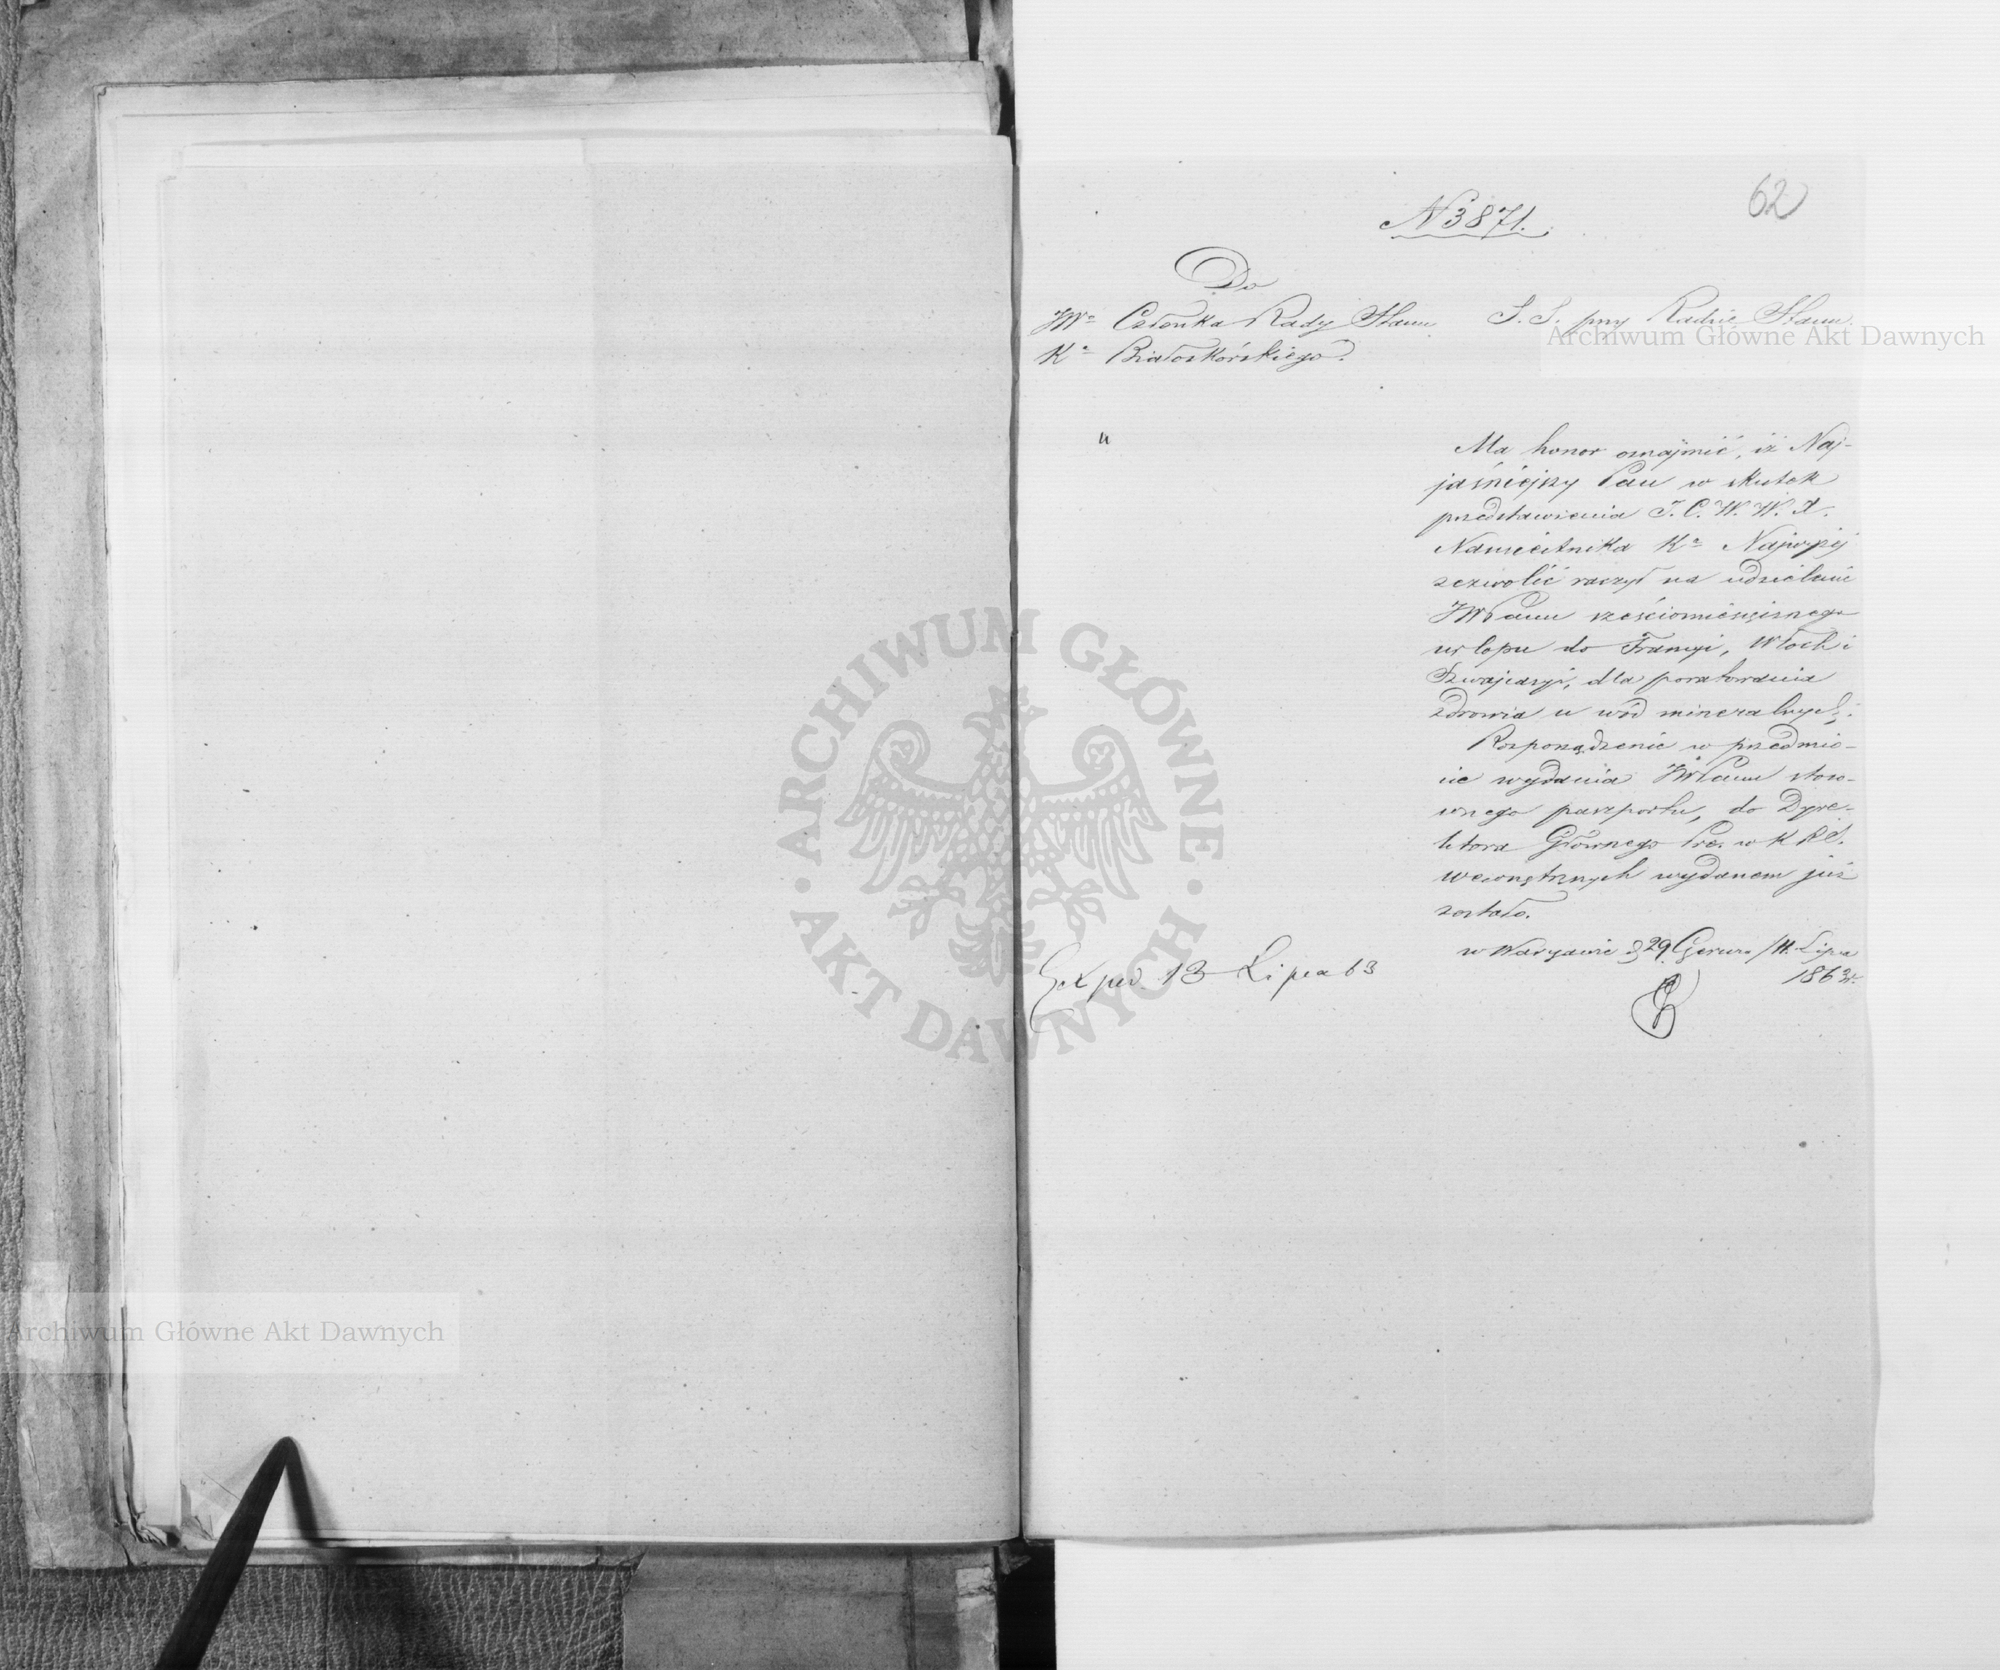 62
N 3871.
Do
JWo Członka Rady Stanu
Ko Białoskórskiego.
S. S. przy Radzie Stanu
Archiwum Główne Akt Dawnych
Ma honor oznajmić, iż Naj-
jaśniejszy Pan w skutek
przedstawienia J. C. W. W. X.
Namiestnika Ka Najwyżej
zezwolić raczył na udzielenie
JWPanu sześciomiesięcznego
urlopu do Francyi, Włoch i
Szwajcaryi, dla poratowania
zdrowia u wód mineralnych.
Rozporządzenie w przedmio-
cie wydania JWPanu stoso-
wnego paszportu, do Dyre-
ktora Głównego Prez. w K R S.
Wewnętrznych wydanem już
zostało.
w Warszawie d 29 Czerwca /11 Lipca
1863 r.
Exped. 13 Lipca 63
ARCHIWUM GŁÓWNE
AKT DAWNYCH
Archiwum Główne Akt Dawnych